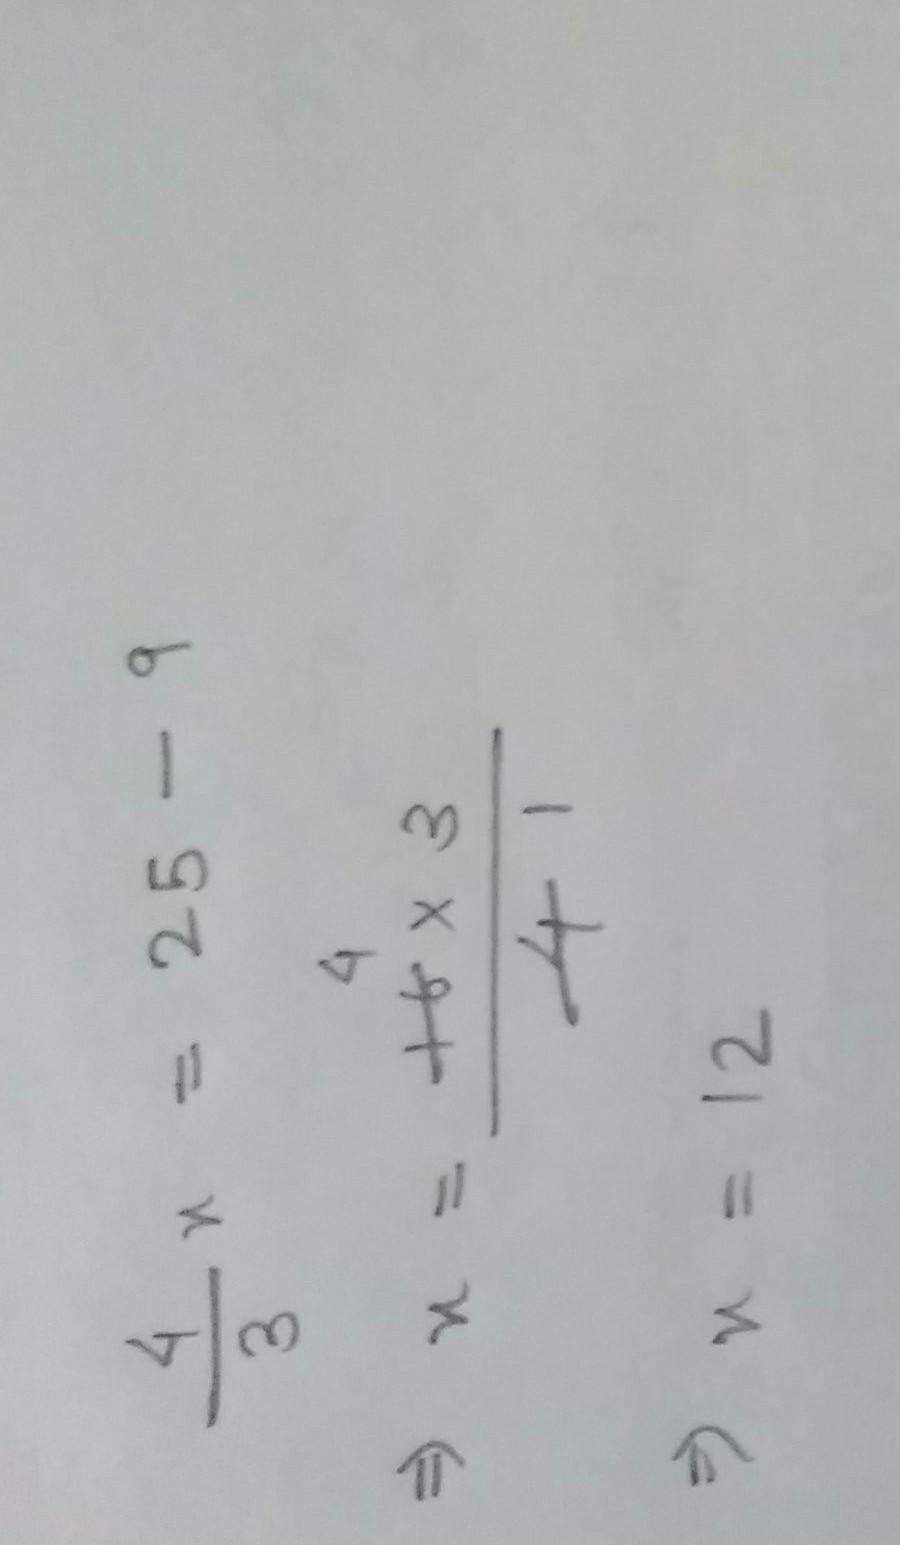 4/3 x = 25 - 9
⇒ x = 16 × 3 / 4 4 1
⇒ x = 12